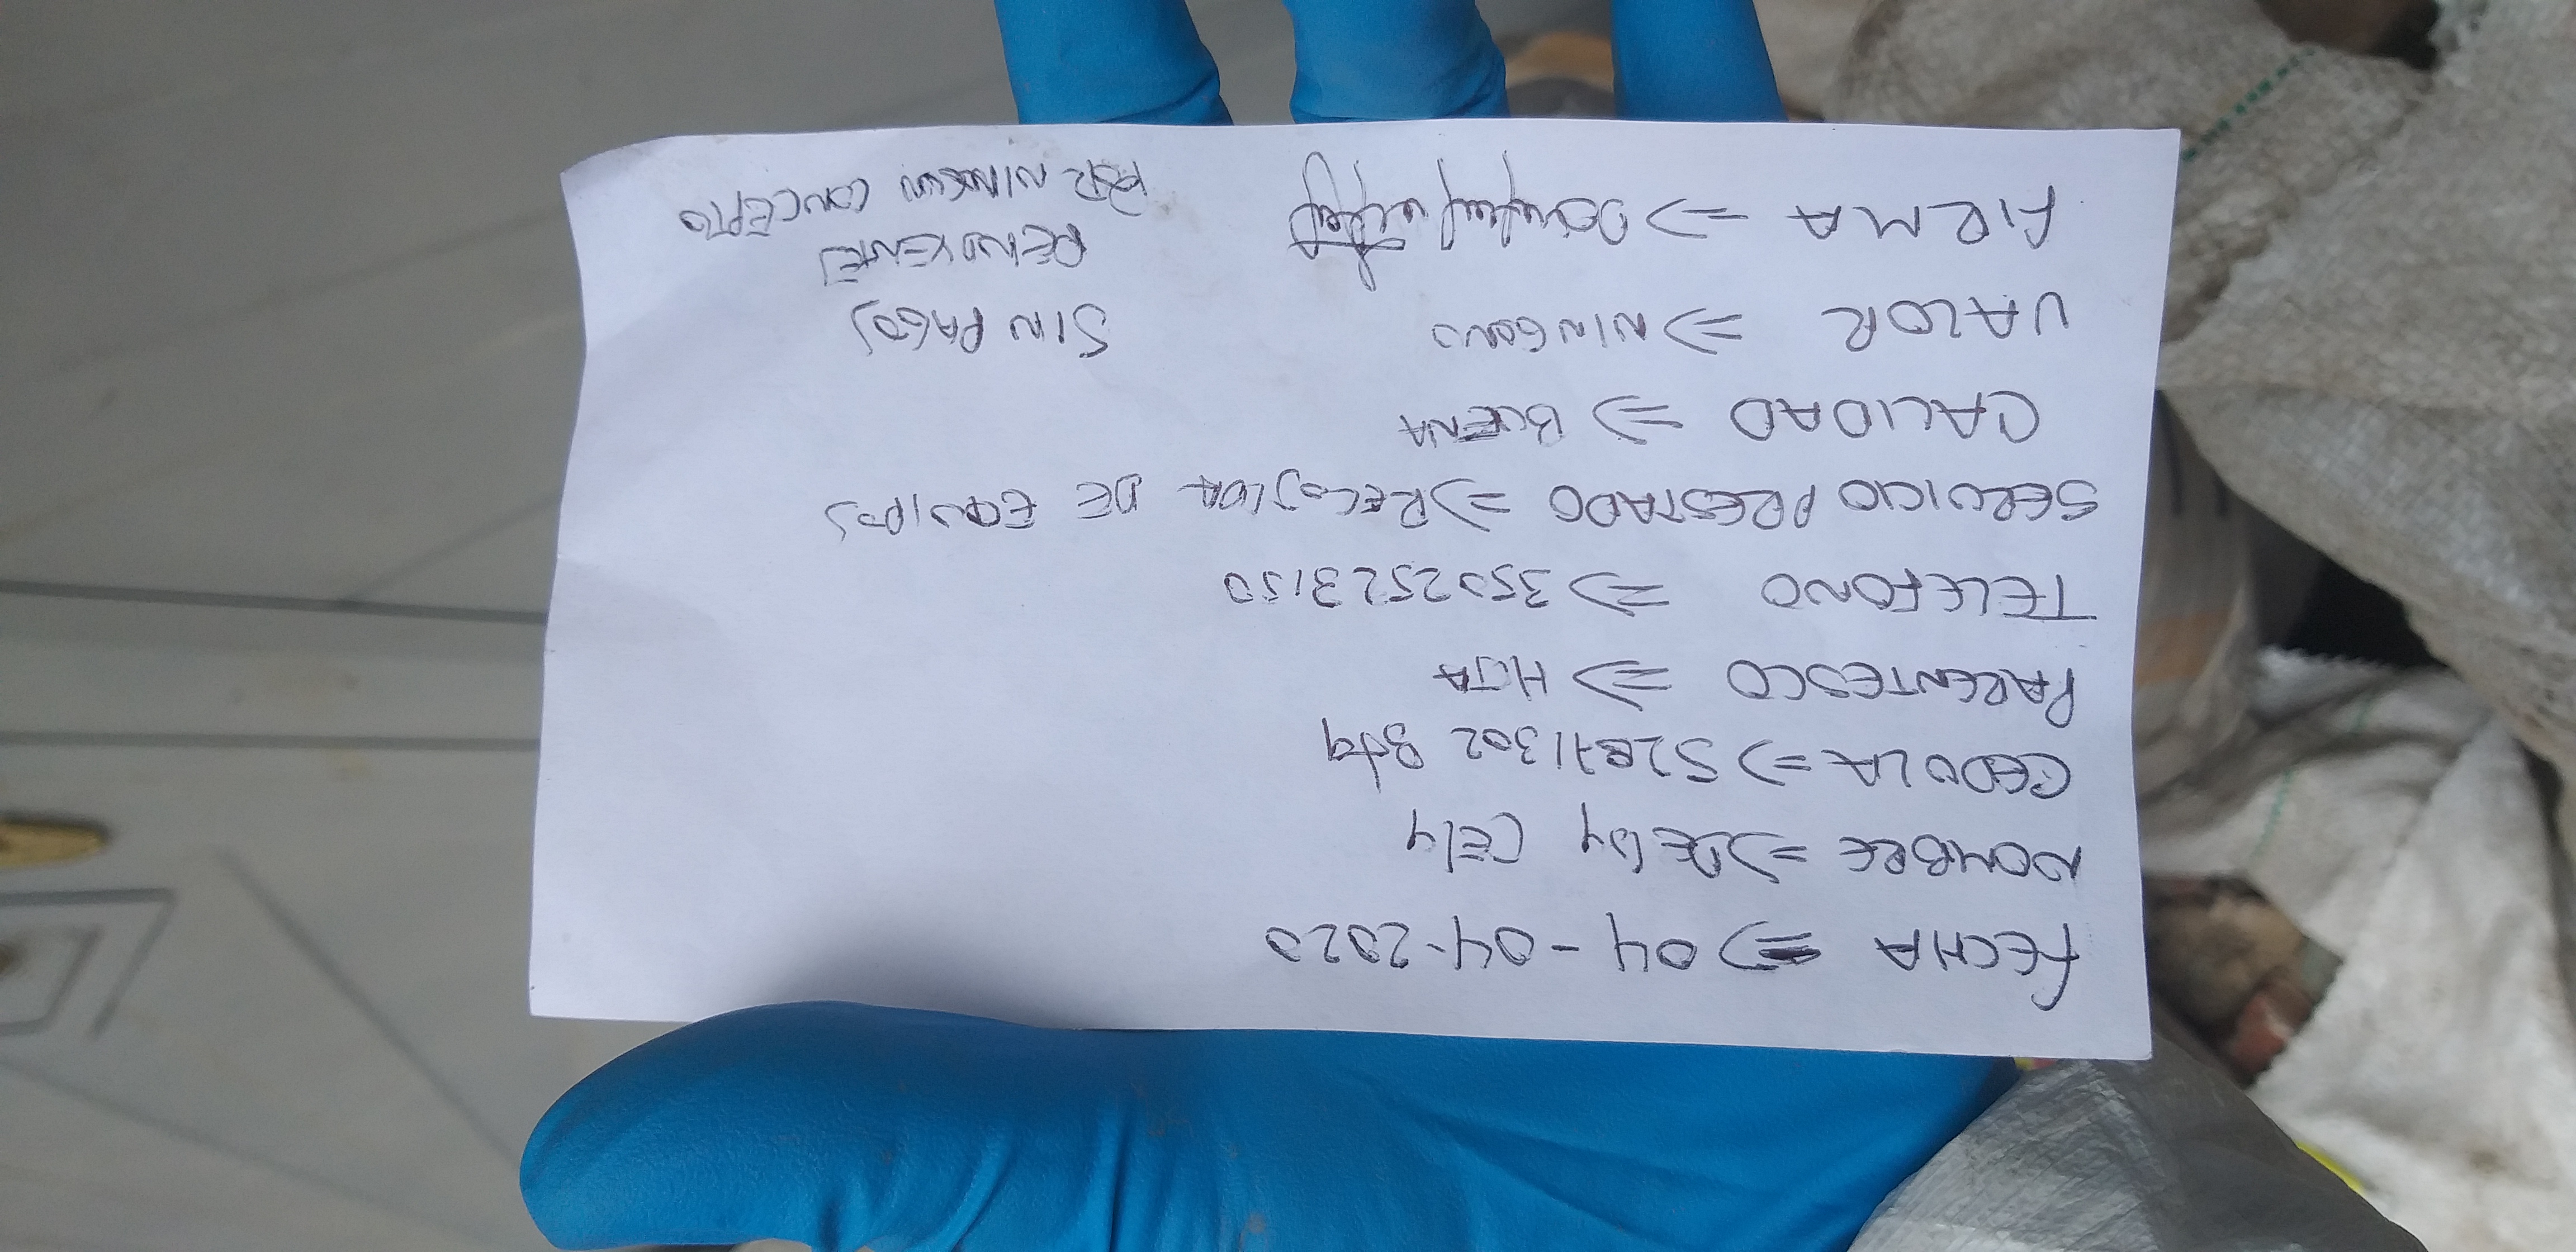 FECHA ⇒ 04-04-2020
NOMBRE ⇒ DEISY CELY
CEDULA ⇒ 52871302 Bta
PARENTESCO ⇒ HIJA
TELEFONO ⇒ 3502523150
SERVICIO PRESTADO ⇒ RECOJIDA DE EQUIPOS
CALIDAD ⇒ BUENA
VALOR ⇒ NINGUNO
SIN PAGOS
PENDIENTES
POR NINGUN CONCEPTO
FIRMA ⇒